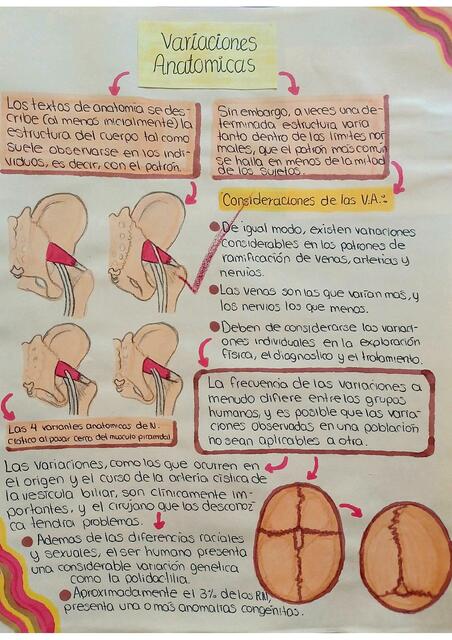 Variaciones
Anatomicas
Los textos de anatomia se des-
cribe (al menos inicialmente) la
estructura del cuerpo tal como
suele observarse en los indi-
viduos, es decir, con el patrón.
Sin embargo, a veces una de-
terminada estructura varia
tanto dentro de los limites nor
males, que el patrón mas comun
se halla en menos de la mitad
de los sujetos.
Consideraciones de las V.A.:
De igual modo, existen variaciones
considerables en los patrones de
ramificación de venas, arterias y
nervios.
Las venas son las que varian mas, y
los nervios los que menos.
Deben de considerarse las variaci-
ones individuales en la exploración
física, el diagnostico y el tratamiento.
La frecuencia de las variaciones a
menudo difiere entre los grupos
humanos, y es posible que las varia-
ciones observadas en una población
no sean aplicables a otra.
Las 4 variantes anatomicas de N.
ciatico al pasar cerca del musculo piramidal
Las variaciones, como las que ocurren en
el origen y el curso de la arteria cistica de
la vesicula biliar, son clinicamente im-
portantes, y el cirujano que las descono-
ca tendra problemas.
Ademas de las diferencias raciales
y sexuales, el ser humano presenta
una considerable variación genetica
como la polidactilia.
Aproximadamente el 3% de los RN,
presenta una o mas anomalias congenitas.